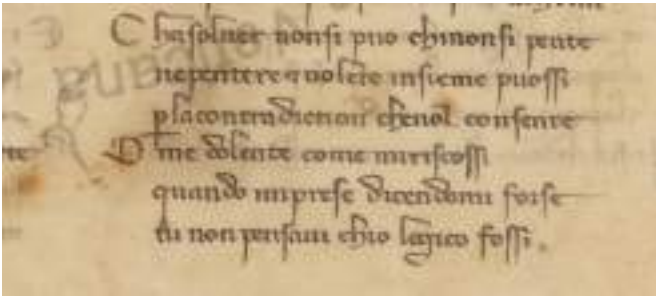 C hasoluer nonsi puo chinonsi pente
nepentere & uolere insieme puossi
placontradiction chenol consente
O me dolente come miriscossi
quando miprese dicendomi forse
tu non pensaui chio logico fossi.